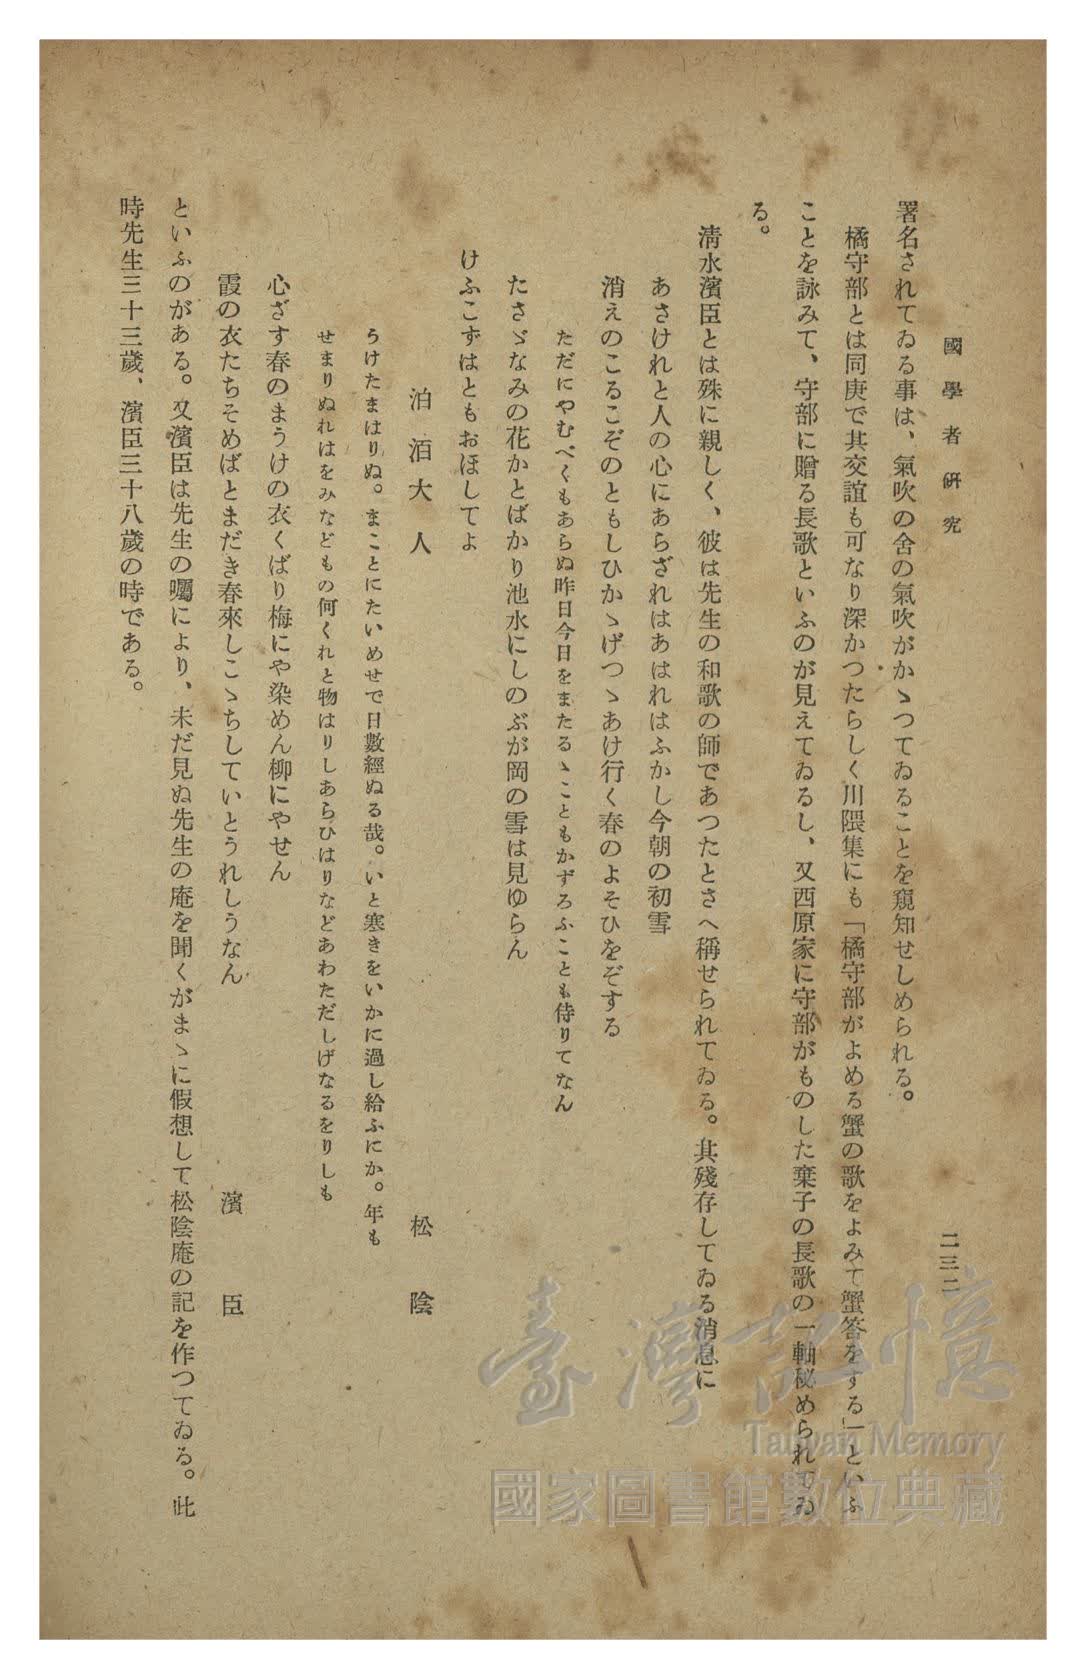 國學者研究
二三二
署名されてゐる事は、氣吹の舍の氣吹がかゝつてゐることを窺知せしめられる。
橘守部とは同庚で其交誼も可なり深かつたらしく川隈集にも「橘守部がよめる蟹の歌をよみて蟹答をする」といふ
ことを詠みて、守部に贈る長歌といふのが見えてゐるし、又西原家に守部がものした棄子の長歌の一軸秘められてゐ
る。
淸水濱臣とは殊に親しく、彼は先生の和歌の師であつたとさへ稱せられてゐる。其殘存してゐる消息に
あさけれと人の心にあらざれはあはれはふかし今朝の初雪
消えのこるこぞのともしひかゝげつゝあけ行く春のよそひをぞする
ただにやむべくもあらぬ昨日今日をまたるゝこともかずろふことも侍りてなん
たさゞなみの花かとばかり池水にしのぶが岡の雪は見ゆらん
けふこずはともおほしてよ
松陰
泊洦大人
うけたまはりぬ。まことにたいめせで日數經ぬる哉。いと寒きをいかに過し給ふにか。年も
せまりぬれはをみなどもの何くれと物はりしあらひはりなどあわただしげなるをりしも
心ざす春のまうけの衣くばり梅にや染めん柳にやせん
霞の衣たちそめばとまだき春來しこゝちしていとうれしうなん
濱臣
といふのがある。又濱臣は先生の囑により、未だ見ぬ先生の庵を聞くがまゝに假想して松陰庵の記を作つてゐる。此
時先生三十三歲、濱臣三十八歲の時である。
臺灣記憶
Taiwan Memory
國家圖書館數位典藏